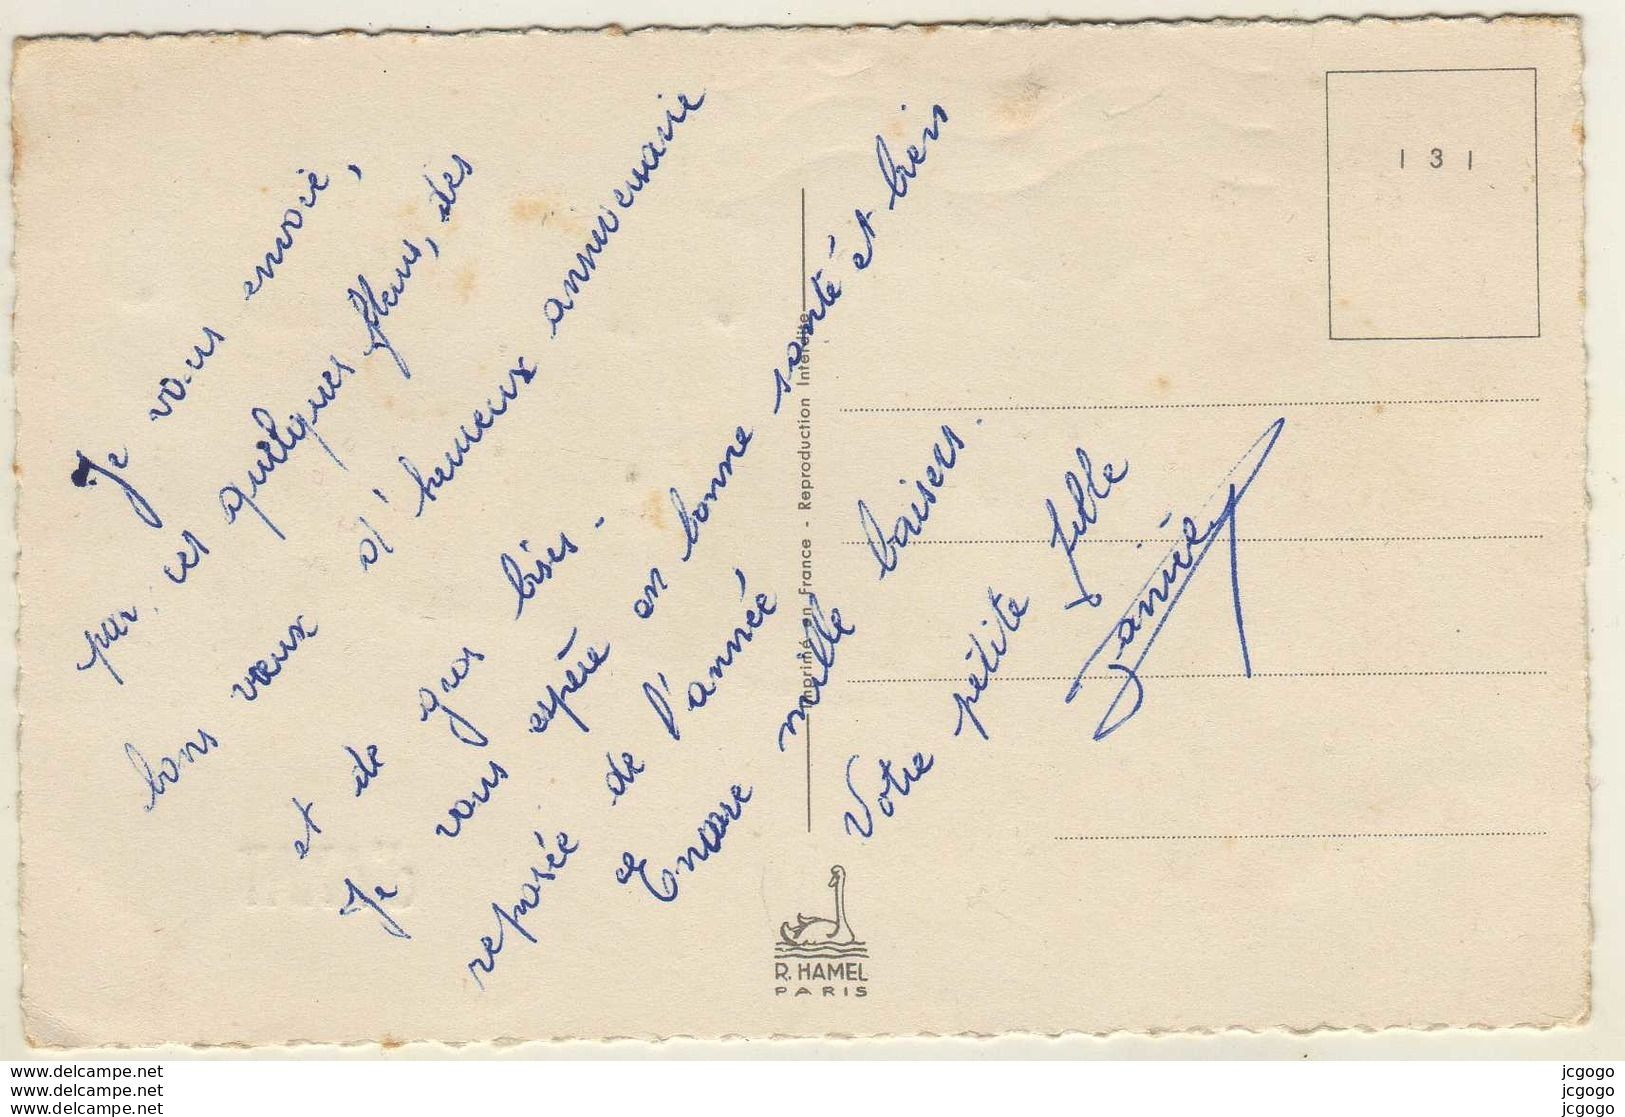 Je vous envoie,
par ces quelques fleurs, des
bons vœux d'heureux anniversaire
et de gros bises.
Je vous espère en bonne santé et bien
reposée de l'année
Encore mille baisers.
Votre petite fille
Danièle
131
Imprimé en France - Reproduction Interdite
R. HAMEL
PARIS
www.delcampe.net
www.delcampe.net
www.delcampe.net
jcgogo
jcgogo
jcgogo